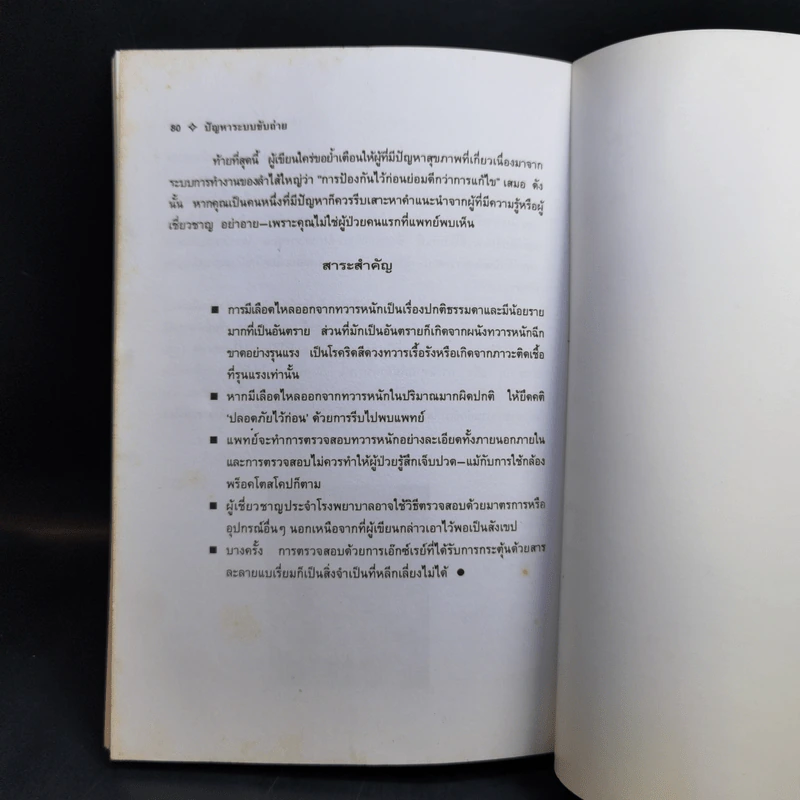 80 ✧ ปัญหาระบบขับถ่าย
ท้ายที่สุดนี้ ผู้เขียนใคร่ขอย้ำเตือนให้ผู้ที่มีปัญหาสุขภาพที่เกี่ยวเนื่องมาจาก
ระบบการทำงานของลำไส้ใหญ่ว่า "การป้องกันไว้ก่อนย่อมดีกว่าการแก้ไข" เสมอ ดัง
นั้น หากคุณเป็นคนหนึ่งที่มีปัญหาก็ควรรีบเสาะหาคำแนะนำจากผู้ที่มีความรู้หรือผู้
เชี่ยวชาญ อย่าอาย—เพราะคุณไม่ใช่ผู้ป่วยคนแรกที่แพทย์พบเห็น
สาระสำคัญ
■ การมีเลือดไหลออกจากทวารหนักเป็นเรื่องปกติธรรมดาและมีน้อยราย
มากที่เป็นอันตราย ส่วนที่มักเป็นอันตรายก็เกิดจากผนังทวารหนักฉีก
ขาดอย่างรุนแรง เป็นโรคริดสีดวงทวารเรื้อรังหรือเกิดจากภาวะติดเชื้อ
ที่รุนแรงเท่านั้น
■ หากมีเลือดไหลออกจากทวารหนักในปริมาณมากผิดปกติ ให้ยึดคติ
'ปลอดภัยไว้ก่อน' ด้วยการรีบไปพบแพทย์
■ แพทย์จะทำการตรวจสอบทวารหนักอย่างละเอียดทั้งภายนอกภายใน
และการตรวจสอบไม่ควรทำให้ผู้ป่วยรู้สึกเจ็บปวด—แม้กับการใช้กล้อง
พร็อคโตสโคปก็ตาม
■ ผู้เชี่ยวชาญประจำโรงพยาบาลอาจใช้วิธีตรวจสอบด้วยมาตรการหรือ
อุปกรณ์อื่นๆ นอกเหนือจากที่ผู้เขียนกล่าวเอาไว้พอเป็นสังเขป
■ บางครั้ง การตรวจสอบด้วยการเอ๊กซ์เรย์ที่ได้รับการกระตุ้นด้วยสาร
ละลายแบเรี่ยมก็เป็นสิ่งจำเป็นที่หลีกเลี่ยงไม่ได้ ●